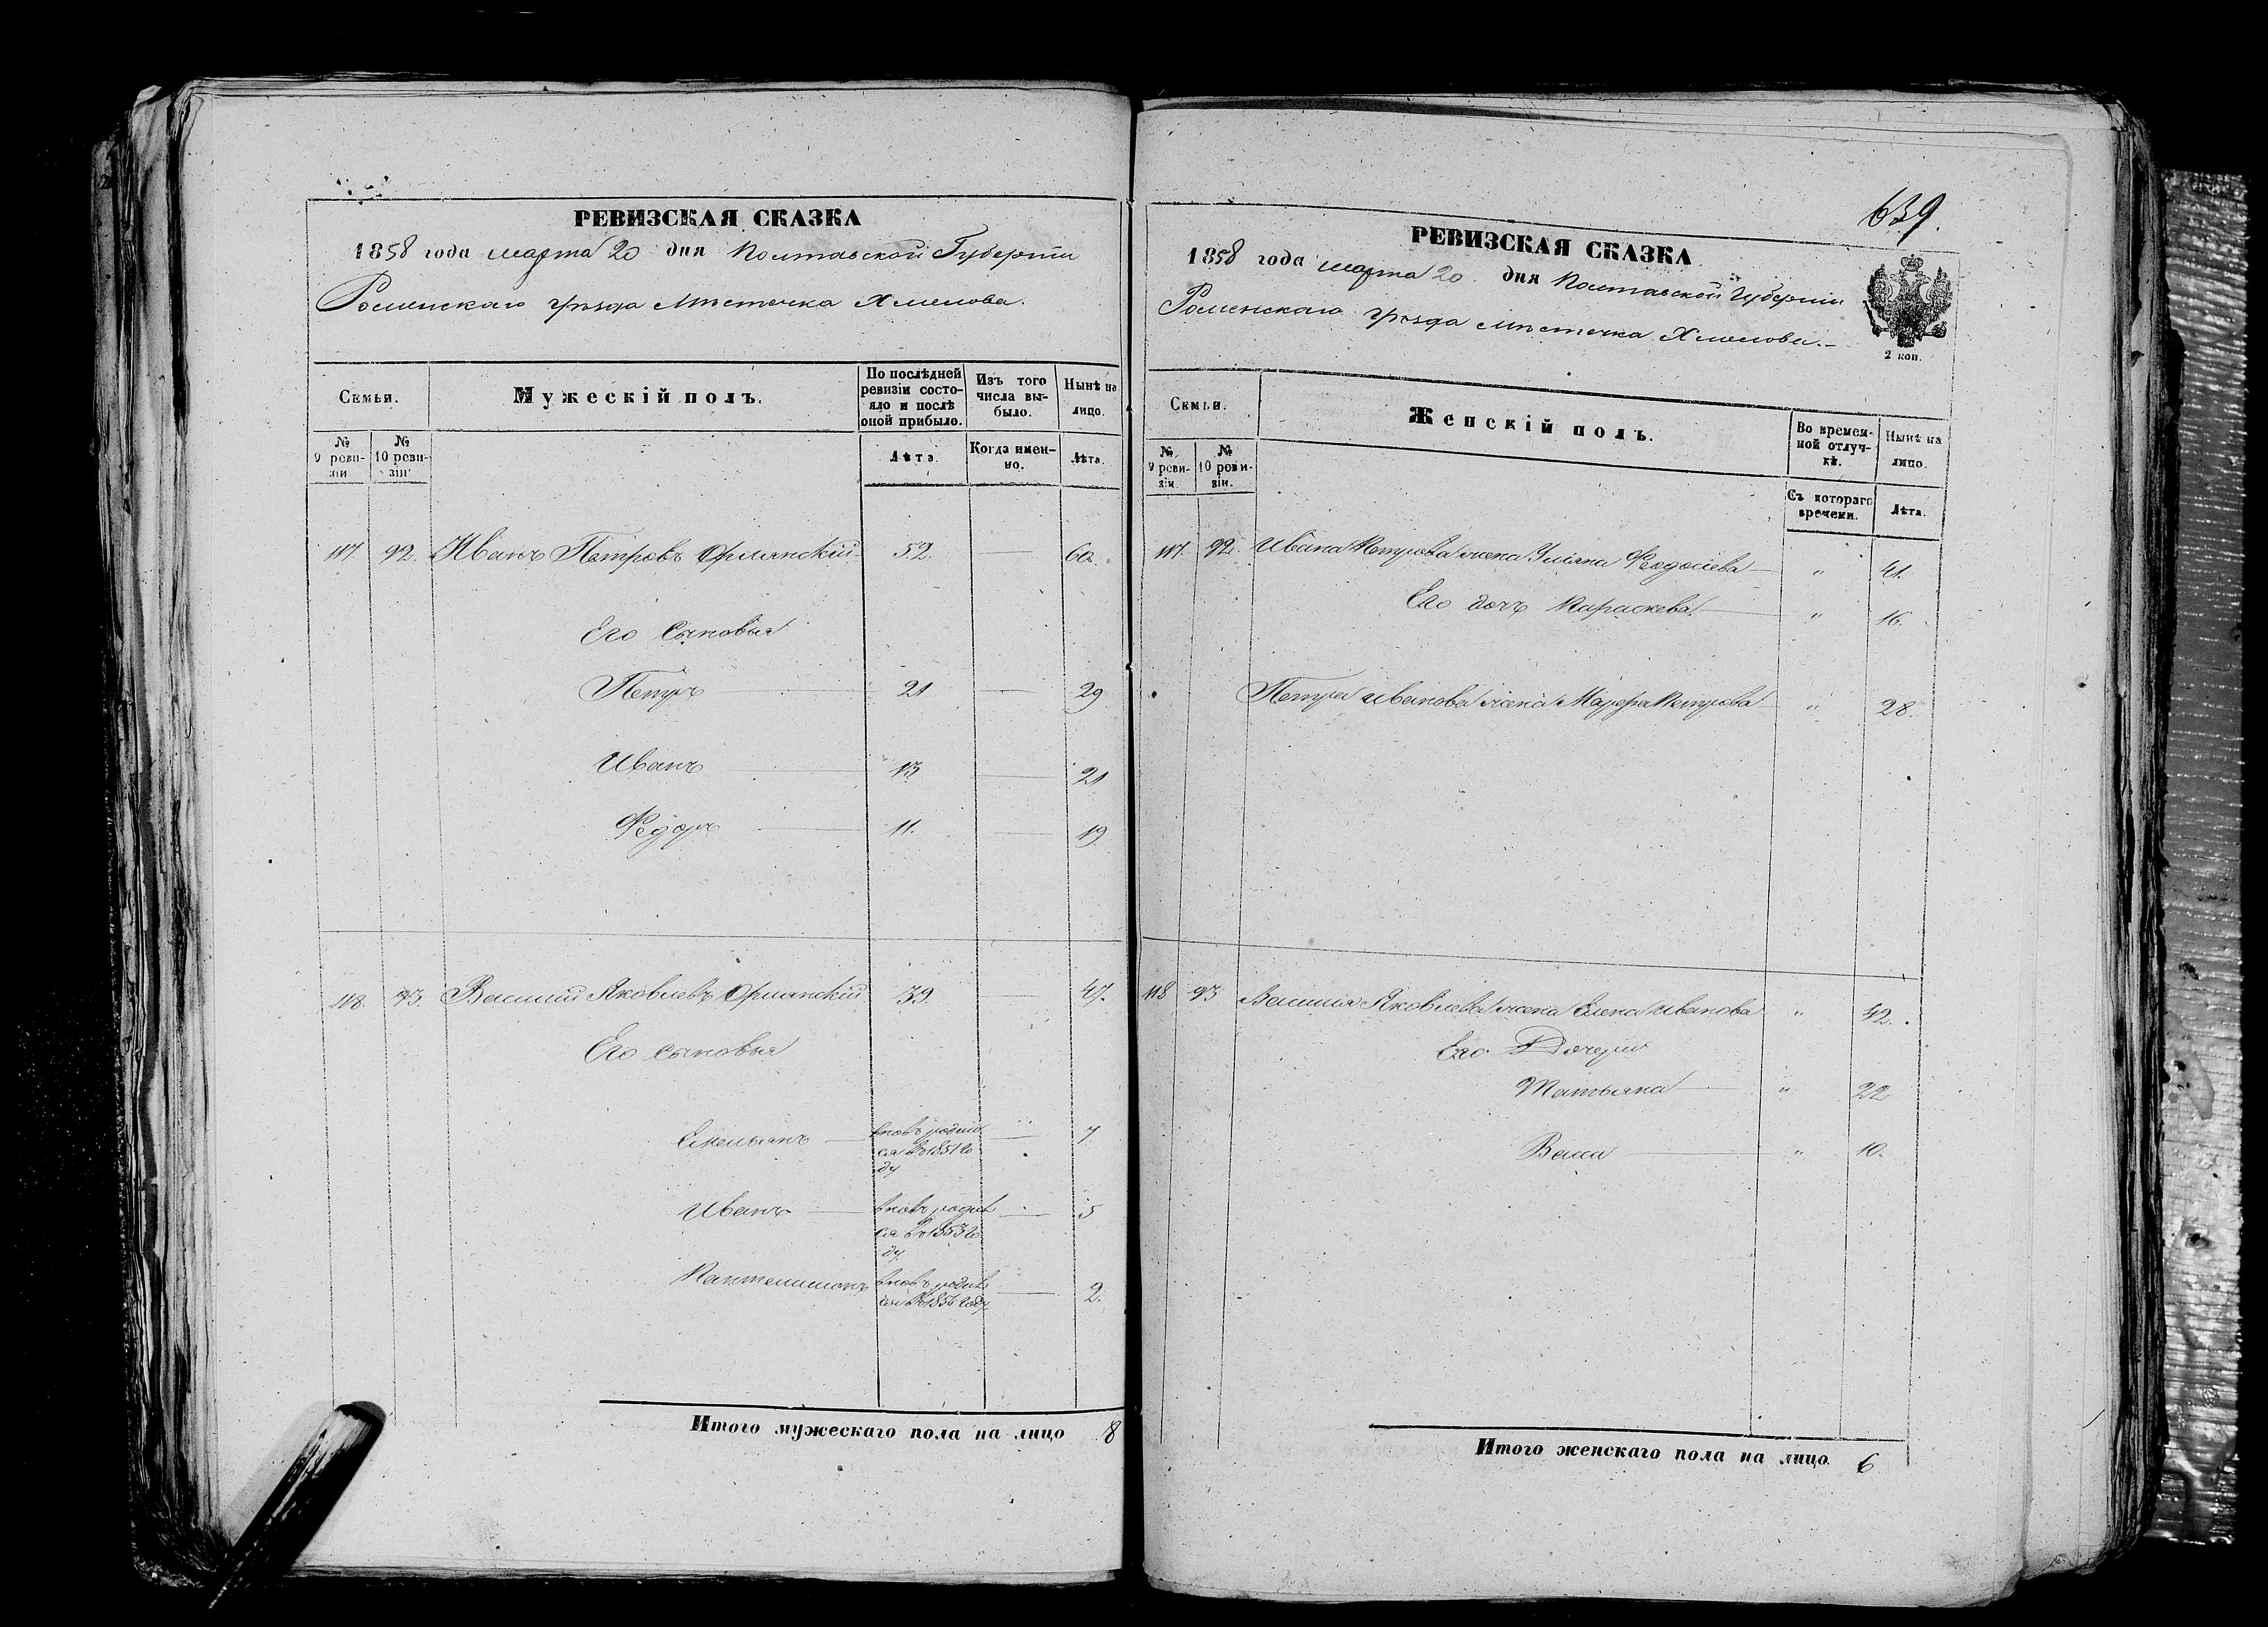 РЕВИЗСКАЯ СКАЗКА
1858 года марта 20 дня Полтавской Губерніи
Роменскаго уѣзда Мѣстечка Хмелова.
Семьи.
Мужескій полъ.
По послѣдней ревизіи состояло и послѣ оной прибыло.
Изъ того числа выбыло.
Нынѣ на лицо.
№ 9 ревизіи
№ 10 ревизіи
Лѣта.
Когда именно.
Лѣта.
117. 92. Иванъ Петровъ Орлянскій 52. 60.
Его Сыновья
Петръ 21 29
Иванъ 13 21
Федоръ 11. 19
118. 93. Василій Яковлевъ Орлянскій 39. 47.
Его сыновья
Емельянъ вновь родил
ся въ 1851 го
ду 7
Иванъ вновь родил
ся въ 1853 го
ду 5
Пантелимонъ вновь родил
ся въ 1856 году 2.
Итого мужескаго пола на лицо 8
639.
РЕВИЗСКАЯ СКАЗКА
1858 года марта 20 дня Полтавской Губерніи
Роменскаго уѣзда Мѣстечка Хмелова.
2 коп.
Семьи.
Женскій полъ.
Во временной отлучкѣ.
Нынѣ на лицо.
№ 9 ревизіи.
№ 10 ревизіи.
Съ котораго времени.
Лѣта.
117. 92. Ивана Петрова жена Уліяна Феодосіева " 41.
Его дочь Параскева " 16.
Петра Иванова жена Марфа Петрова " 28.
118 93 Василія Яковлева жена Елена Иванова " 42.
Его Дочери
Татьяна " 22
Васса " 10.
Итого женскаго пола на лицо 6